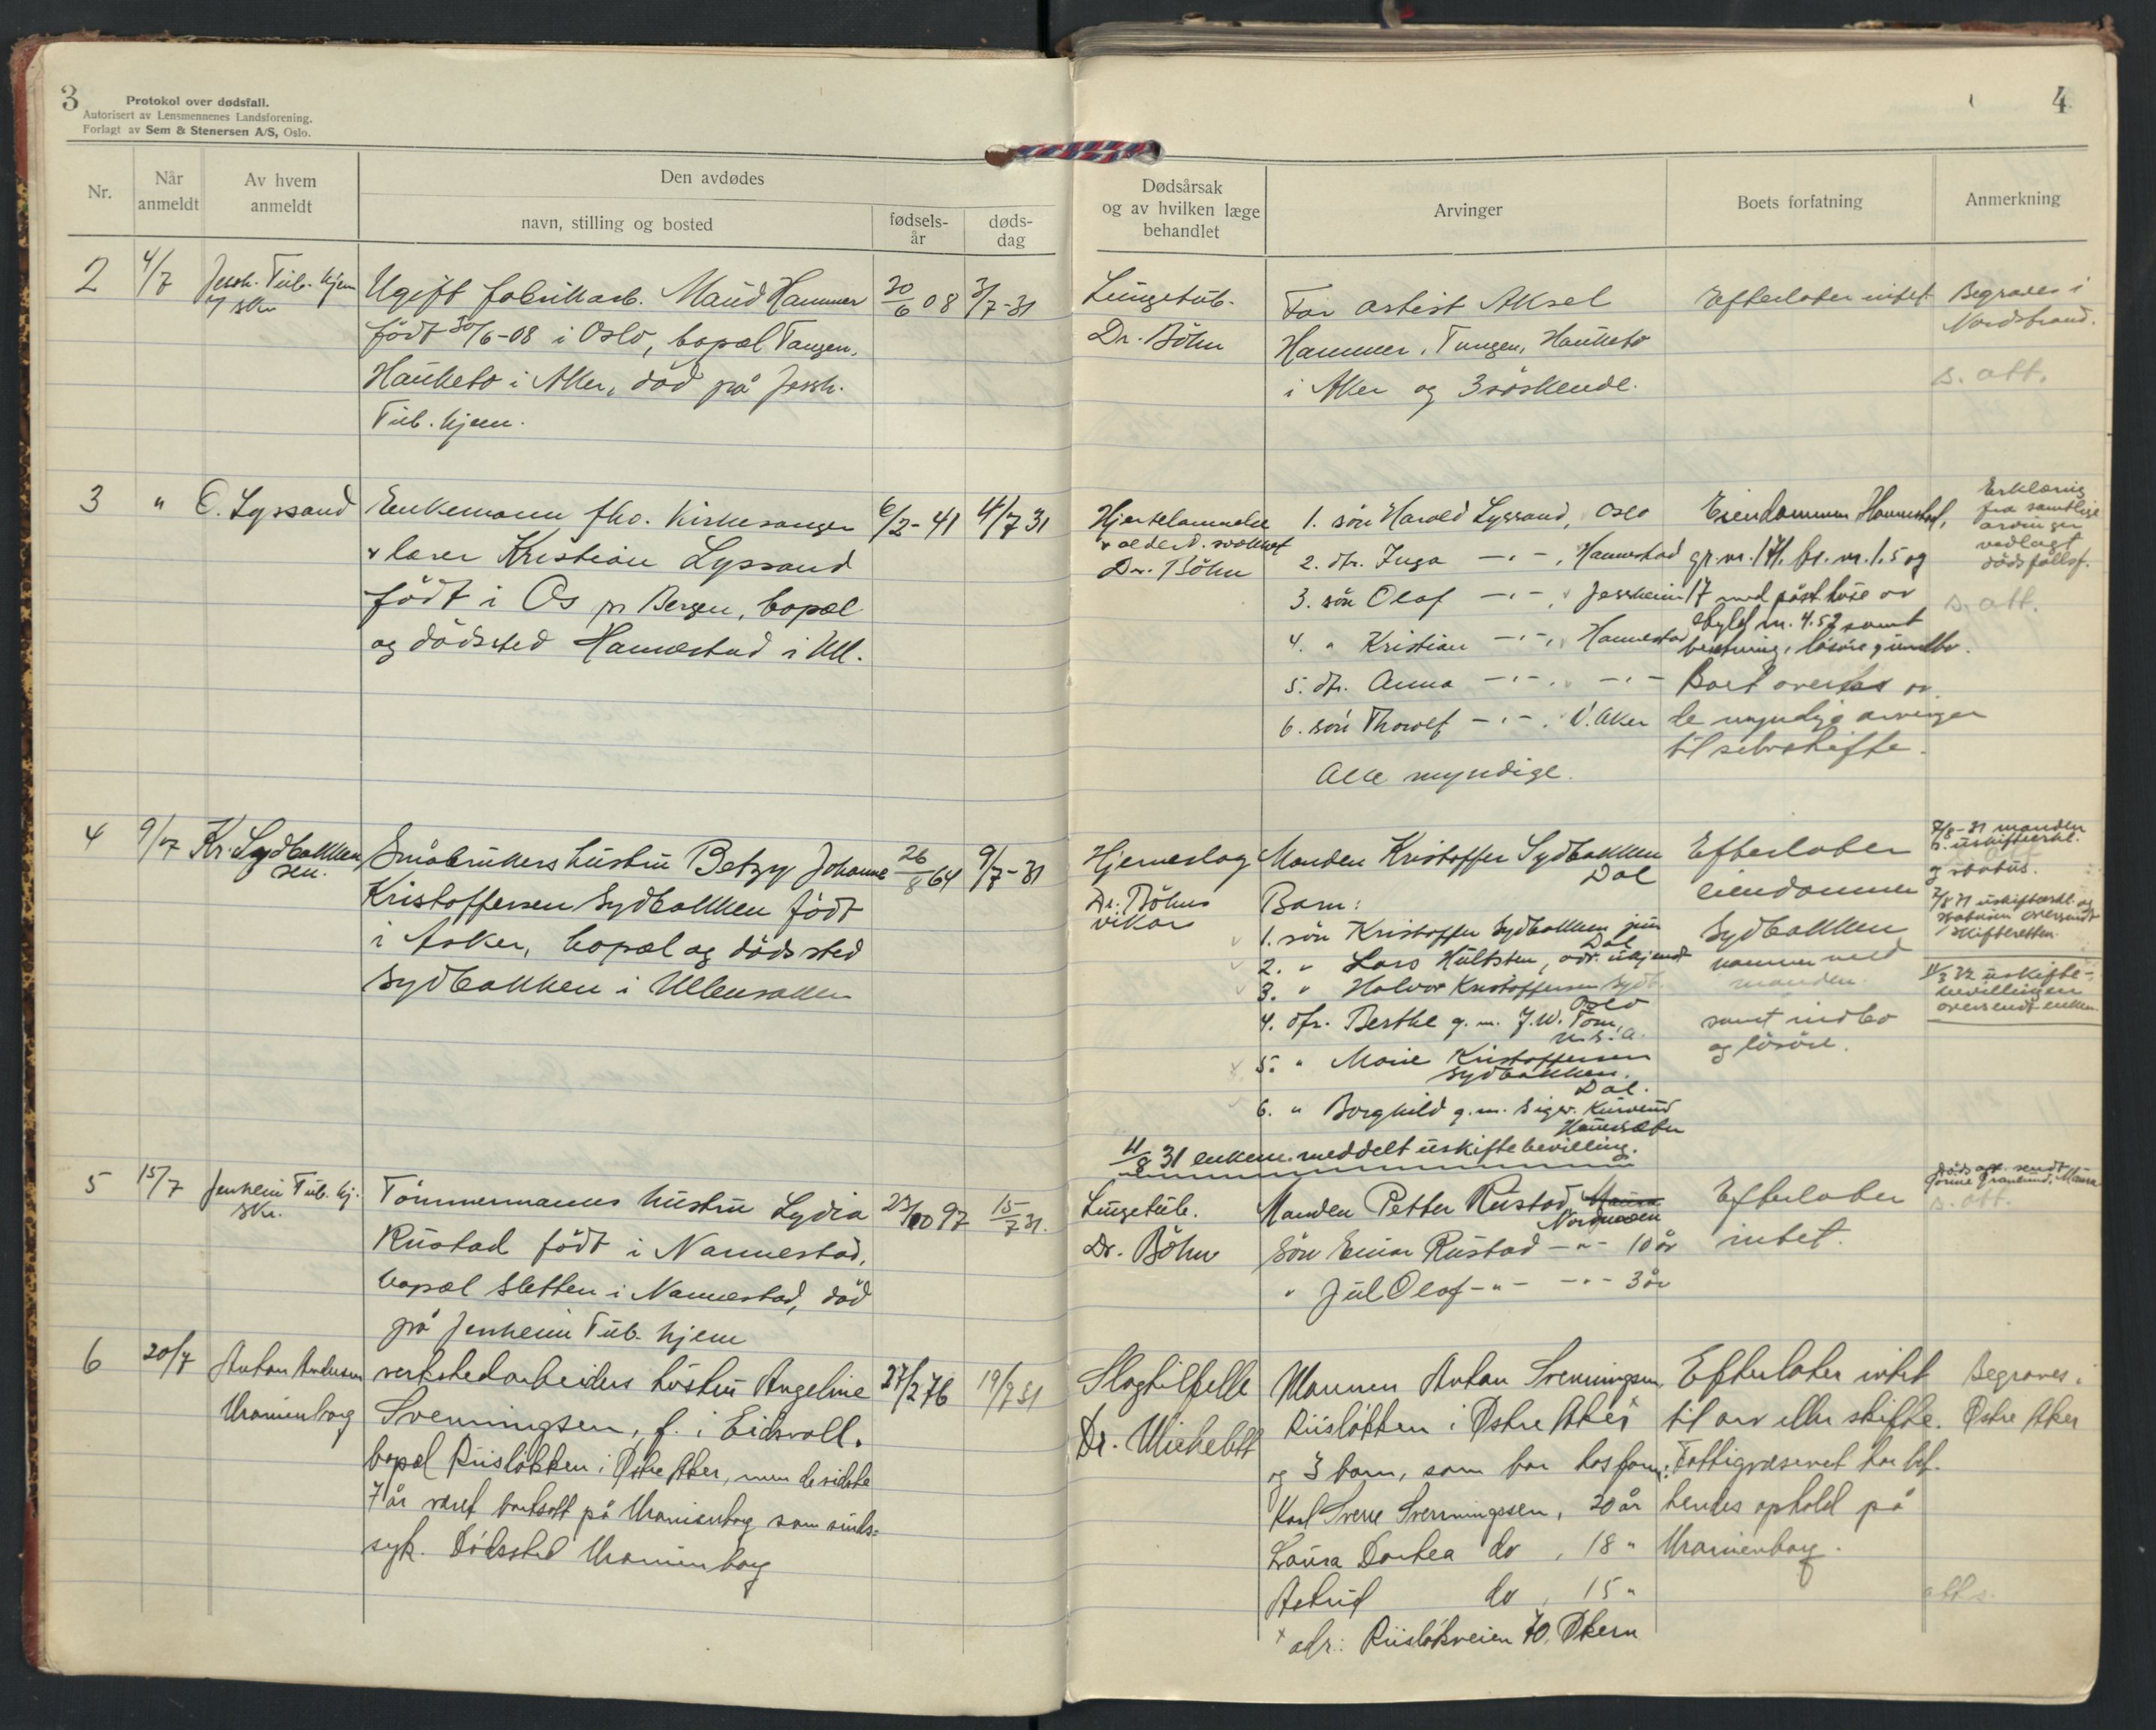 3
Protokol over dødsfall.
Autorisert av Lensmennenes Landsforening.
Forlagt av Sem & Stenersen A/S, Oslo.
4
Nr.
Når anmeldt
Av hvem anmeldt
Den avdødes
navn, stilling og bosted
fødsels-
år
døds-
dag
Dødsårsak
og av hvilken læge
behandlet
Arvinger
Boets forfatning
Anmerkning
2
4/7
Jessh. Tub. hjem
Ugift fabrikarb. Maud Hammer
født 30/6-08 i Oslo, bopæl Tangen,
Hauketo i Aker, död på Jessh.
Tub. hjem.
30/6 08
3/7-31
Lungetub.
Dr. Böhn
Far artist Aksel
Hammer, Tangen, Hauketo
i Aker og 3 söskende.
Efterlater intet
Begraves i
Nordstrand.
s. att.
3
"
O. Lyssand
Enkemann fhv. Kirkesanger
& lærer Kristian Lyssand
födt i Os pr Bergen, bopæl
og dödsted Hannestad i Ull.
6/2-41
4/7 31
Hjertelammelse
& alderd. svakhet
Dr. Böhn
1. sön Harald Lyssand, Oslo
2. dtr. Inga -"-, Hannestad
3. sön Olaf -"-, Jessheim
4. " Kristian -"-, Hannestad
5. dtr. Anna -"-, -"-
6. sön Thorolf -"-, V. Aker
Alle myndige.
Eiendommen Hannestad,
gr. nr. 171, br. nr. 1, 5 og
17 med påst. huse av
skyld m. 4.52 samt
besetning, lösöre, innbo.
Boet overtas av
de myndige arvinger
til selvskifte.
Erklæring
fra samtlige
arvinger
vedlagt
dödsfallsf.
s. att.
4
9/7
Kr. Sydbakken
sen.
Småbrukers hustru Betzy Johanne
Kristoffersen Sydbakken födt
i Asker, bopæl og dödssted
Sydbakken i Ullensaker
26/8 64
9/7-31
Hjerneslag
Dr. Böhns
vikar
Manden Kristoffer Sydbakken
Dal
Barn:
1. sön Kristoffer Sydbakken jun
Dal
2. " Lars Hultsten, adr. ukjendt
3. " Halvor Kristoffersen Sydb.
Oslo
4. dtr. Berthe g. m. J. W. Tom,
U.S.A.
5. " Marie Kristoffersen
Sydbakken.
Dal.
6. " Borghild g. m. Sigv.
Efterlater
eiendommen
Sydbakken
sammen med
manden
samt indbo
og lösöre.
7/8-31 manden
s. uskifteerkl.
og status.
7/8 31 uskifteerkl. og
statusen oversendt
skifteretten
11/3 32 uskifte-
bevillingen
oversendt enkem.
11/8 31 enkem. meddelt uskiftebevilling.
5
15/7
Jessheim Tub. hj.
Tömmermanns hustru Lydia
Rustad födt i Nannestad,
bopæl Sletten i Nannestad, död
på Jessheim Tub. hjem
23/10 97
15/7 31.
Lungetub.
Dr. Böhn
Manden Petter Rustad, Maura
Nordmoen
Sön Einar Rustad -"- 10 år
" Jul Olaf -"- -"- 3 år
Efterlater
intet.
Dödsatt. sendt
s. att.
6
20/7
Anton Andersen
Uranienborg
verkstedarbeiders hustru Angeline
Svenningsen, f. i Eidsvoll.
bopæl Riisløkken i Østre Aker, men de sidste
7 år været bortsatt på Uranienborg som sinds-
syk. Dödssted Uranienborg
27/2 76
19/7 31
Slagtilfelle
Dr. Michelet
Mannen Anton Svenningsen,
Riisløkken i Østre Aker x
og 3 barn, som bor hos fam:
Karl Sverre Svenningsen, 20 år
Laura Dorthea do, 18 "
Astrid do, 15 "
x adr: Riisløkveien 70, Økern
Efterlater intet
til arv eller skifte.
Fattigvæsenet har bet.
hendes ophold på
Uranienborg.
Begraves i
Østre Aker
att s.